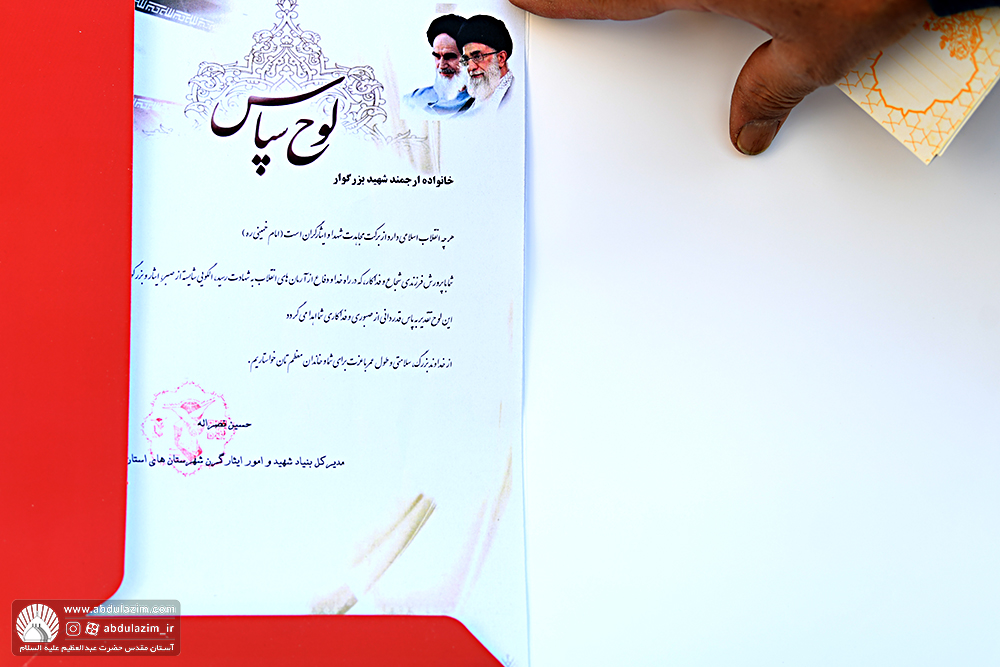 لوح سپاس
خانواده ارجمند شهید بزرگوار
هر چه انقلاب اسلامی دارد از برکت مجاهدت شهدا و ایثارگران است (امام خمینی ره)
شما با پرورش فرزندی شجاع و فداکار، که در راه خدا و دفاع از آرمان های انقلاب به شهادت رسید، الگویی شایسته از صبر، ایثار و
این لوح تقدیر به پاس قدردانی از صبوری و فداکاری شما اهدا می گردد
از خداوند بزرگ، سلامتی و طول عمر با عزت برای شما و خاندان معظم تان خواستاریم.
حسین نصراله
مدیر کل بنیاد شهید و امور ایثارگرن شهرستان های استان
www.abdulazim.com
abdulazim_ir
آستان مقدس حضرت عبدالعظیم علیه السلام